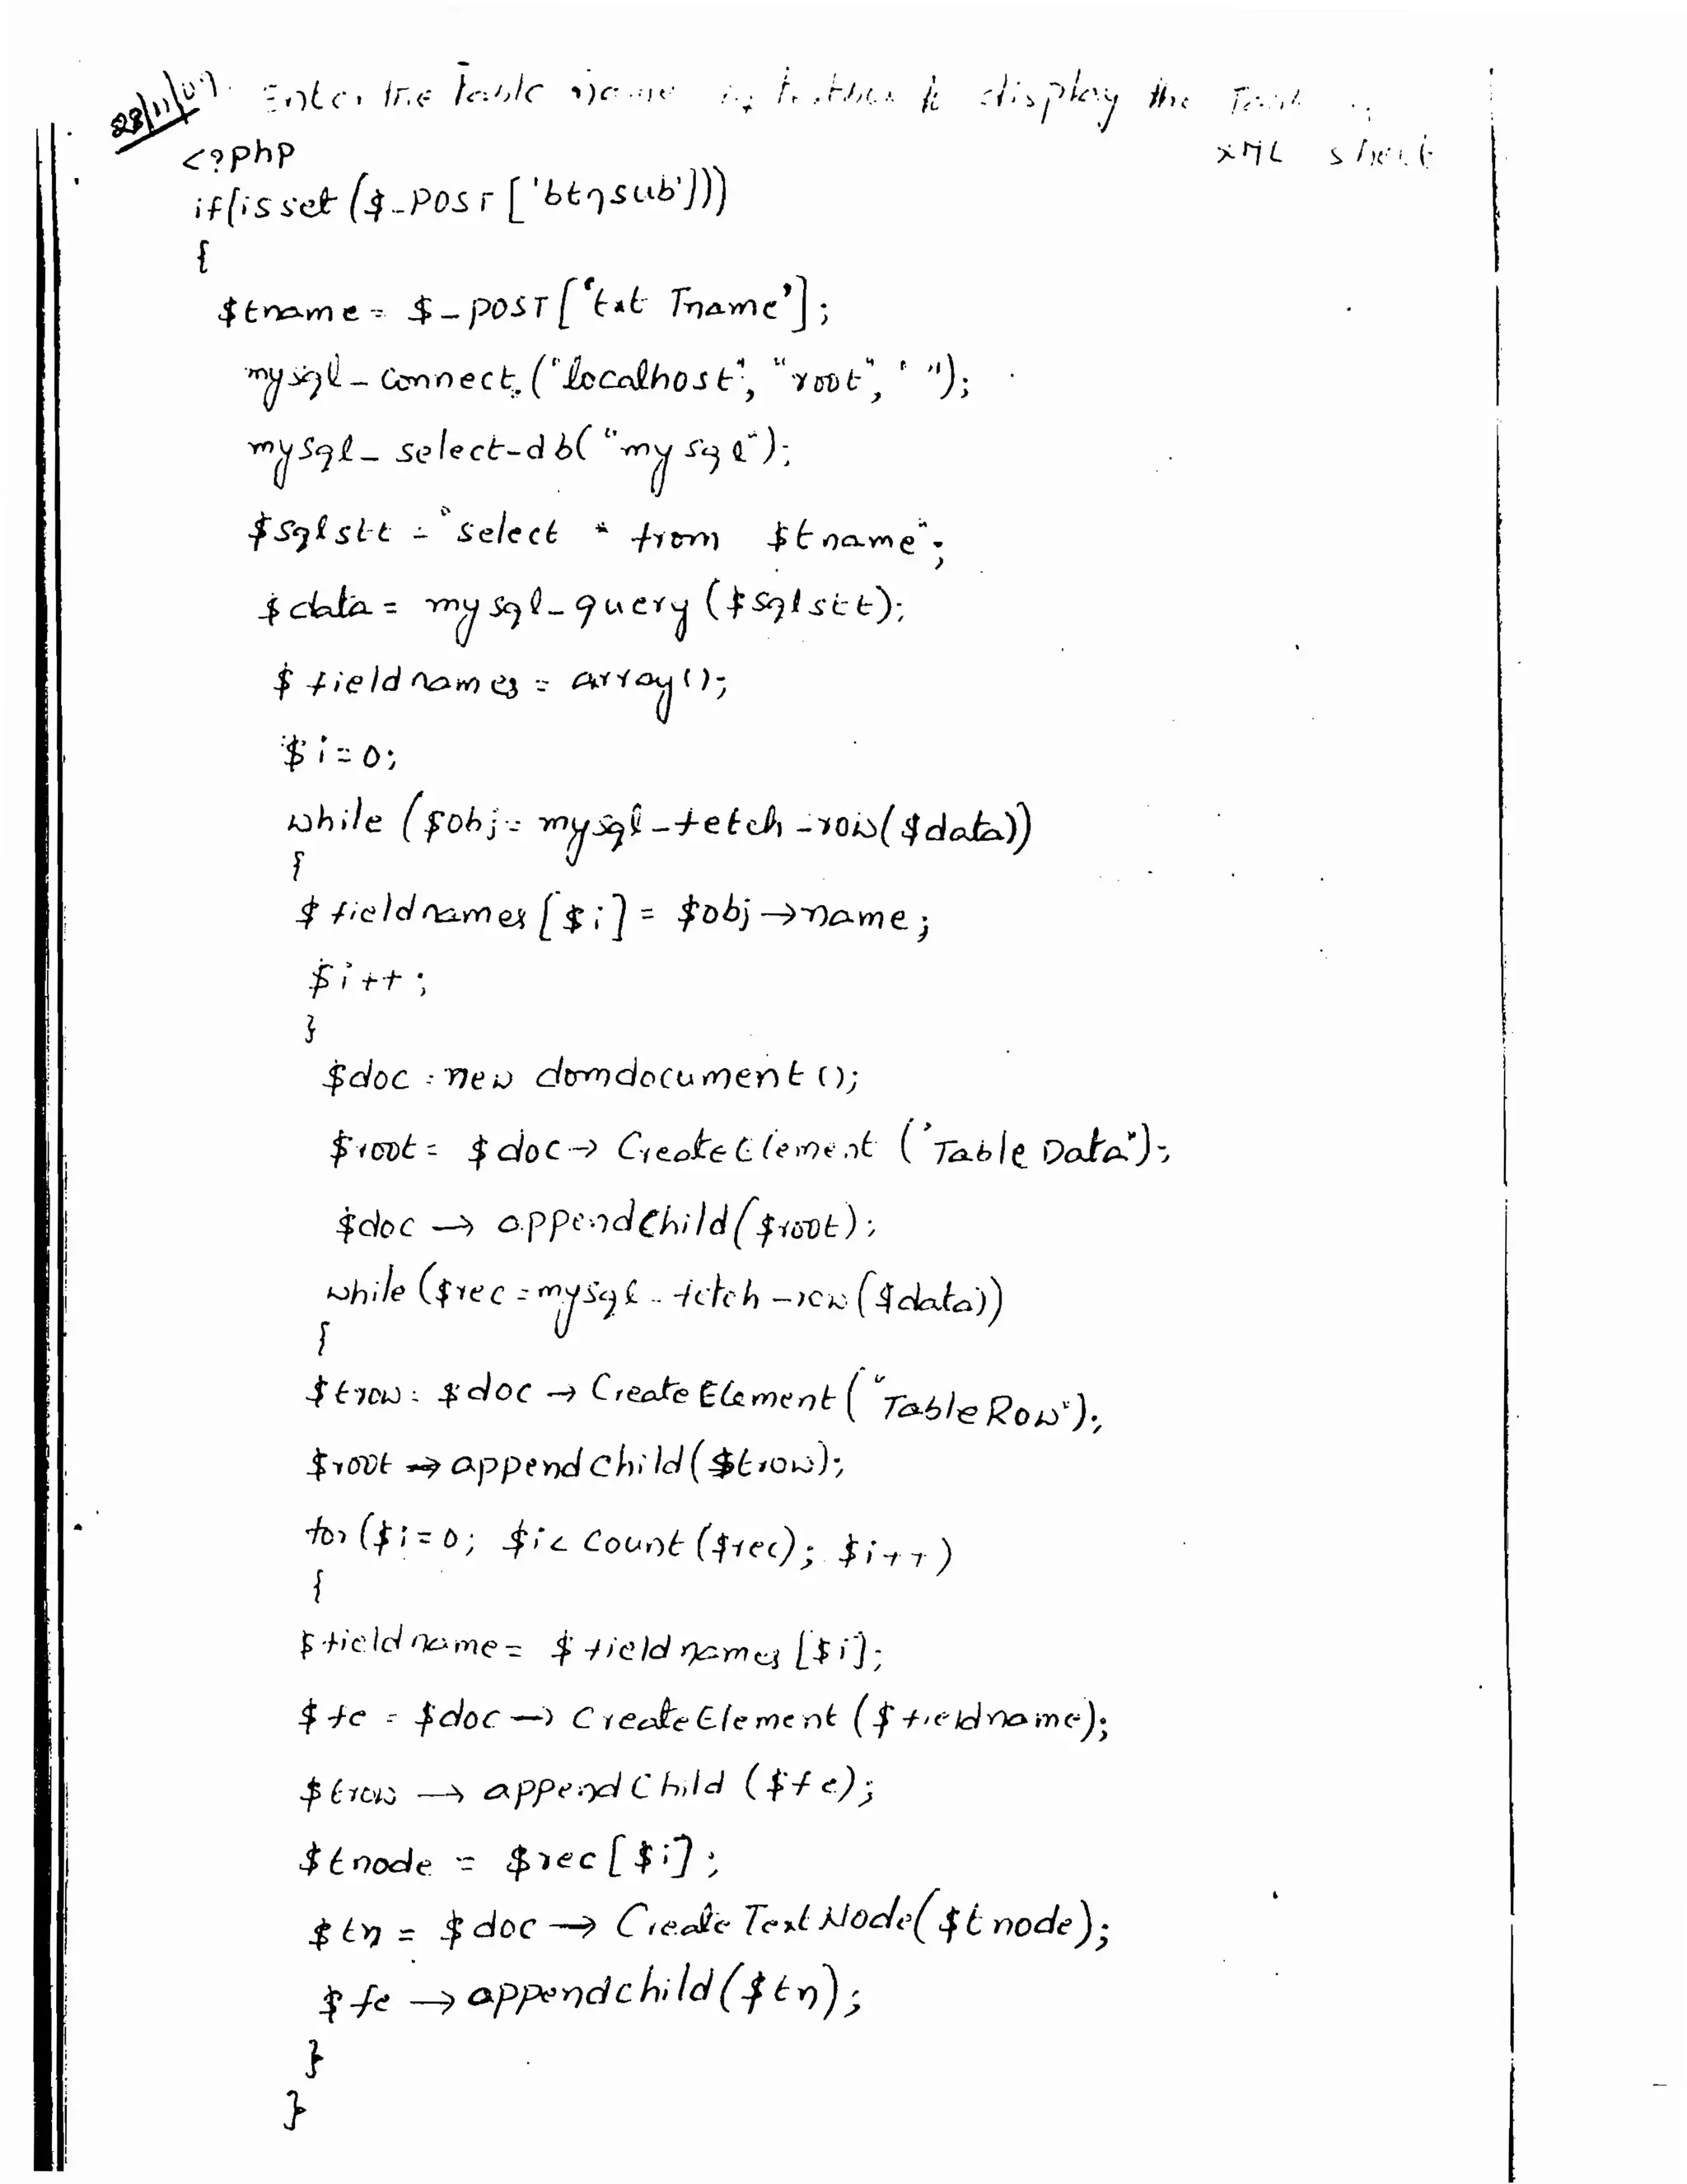 28/11/07. Enter the Table name in textbox to display the Table in
XML sheet
<?php
if(isset($_POST['btnsub']))
{
$tname = $_POST['txt Tname'];
mysql_connect("localhost", "root", " ");
mysql_select-db("mysql");
$sqlstt = "select * from $tname";
$data = mysql_query($sqlstt);
$fieldnames = array();
$i=0;
while ($obj = mysql_fetch_row($data))
{
$fieldnames[$i] = $obj→name;
$i++;
}
$doc = new domdocument();
$root = $doc→CreateElement("Table Data");
$doc→appendChild($root);
while ($rec = mysql_fetch_row($data))
{
$trow = $doc→CreateElement("TableRow");
$root→appendchild($trow);
for($i=0; $i< Count($rec); $i++)
{
$fieldname = $fieldnames[$i];
$fe = $doc→CreateElement($fieldname);
$trow→appendChild($fe);
$tnode = $rec[$i];
$tn = $doc→CreateTextNode($tnode);
$fe→appendchild($tn);
}
}